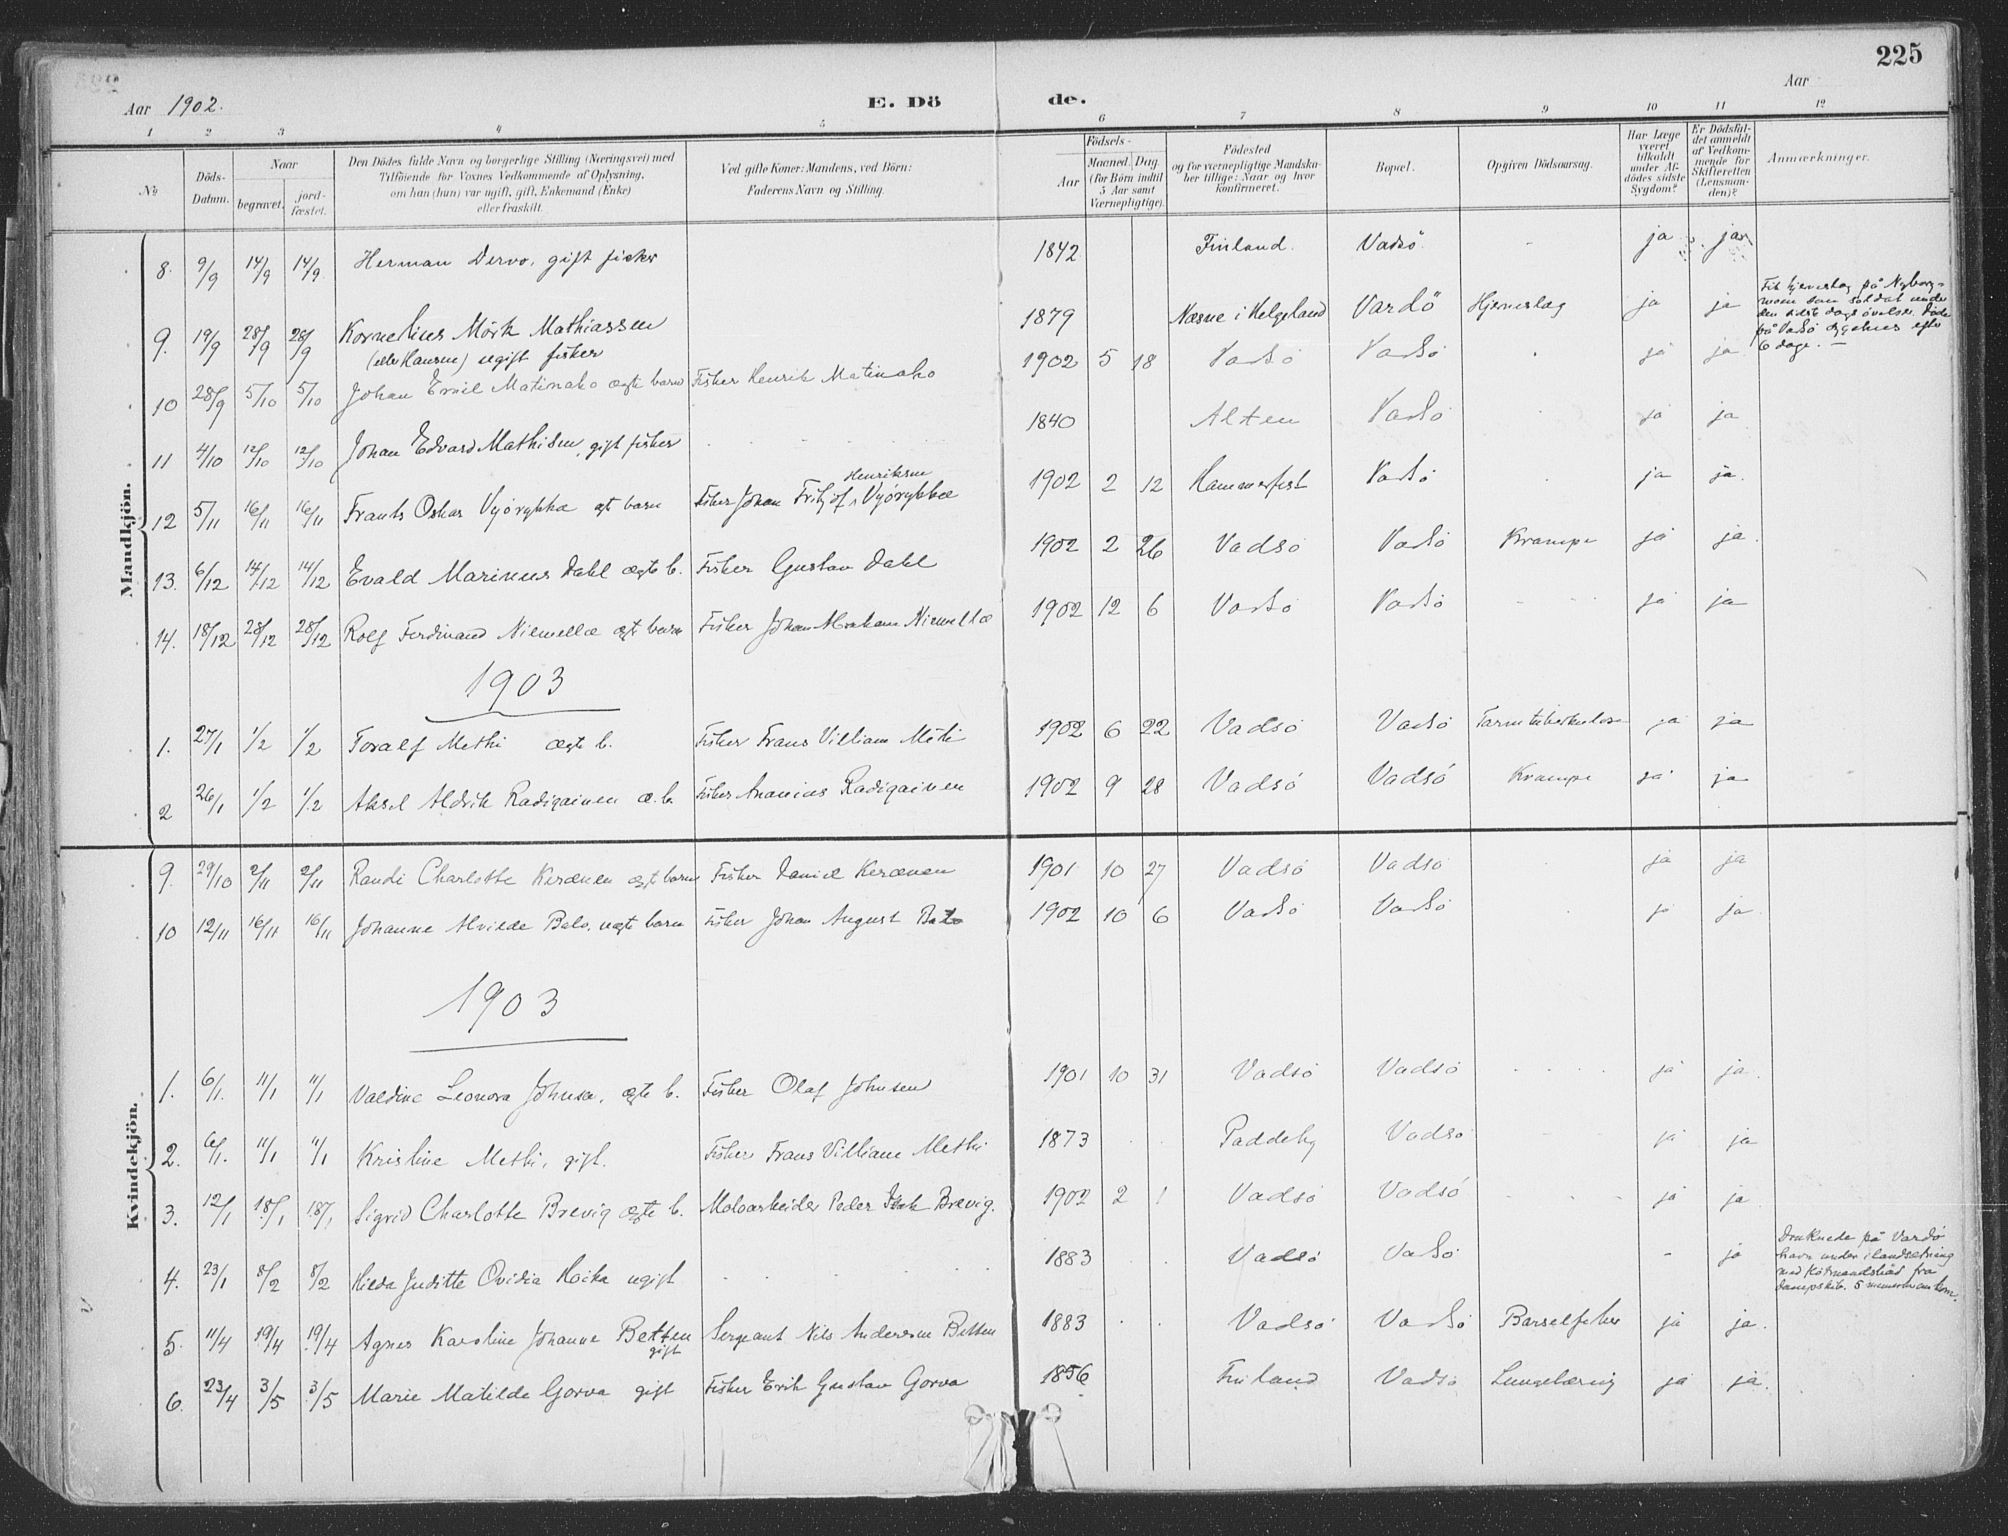 225
Aar 1902. E. Döde. Aar
1 2 3 4 5 6 7 8 9 10 11 12
No Döds-Datum. Naar begravet. jordfæstet. Den Dödes fulde Navn og borgerlige Stilling (Næringsvei) med Tilföiende for Voxnes Vedkommende af Oplysning, om han (hun) var ugift, gift, Enkemand (Enke) eller fraskilt. Ved gifte Koner: Mandens, ved Börn: Faderens Navn og Stilling. Födsels- Aar Maaned. Dag. (for Börn indtil 5 Aar samt Værnepligtige). Födested og for værnepligtige Mandskaber tillige: Naar og hvor konfirmeret. Bopæl. Opgiven Dödsaarsag. Har Læge været tilkaldt under Afdödes sidste Sygdom? Er Dödsfaldet anmeldt af Vedkommende for Skifteretten (Lensmanden)? Anmærkninger.
Mandkjön.
8. 9/9 14/9 14/9 Herman Dervo, gift fisker 1842 Finland. Vadsö. - ja ja
9. 19/9 28/9 28/9 Kornelius Mörk Mathiassen (eller Hansen) ugift fisker 1879 Næsne i Helgeland Vardö Hjerneslag ja ja Fik hjerneslag på Nyborgmoen som soldat under den sidste dags øvelse. Døde på Vadsö sygehus efter 6 dage. —
10 28/9 5/10 5/10 Johan Emil Matinaho ægte barn Fisker Henrik Matinaho 1902 5 18 Vadsö Vadsö ja ja
11 4/10 12/10 12/10 Johan Edvard Mathisen, gift fisker 1840 Alten Vadsö ja ja
12 5/11 16/11 16/11 Frants Oskar Vyörykkæ egt barn Fisker Johan Fritjof Henriksen Vyörykkæ 1902 2 12 Hammerfest Vadsö ja ja.
13. 6/12 14/12 14/12 Evald Marinus Dahl ægte b. Fisker Gustav Dahl 1902 2 26 Vadsö Vadsö Krampe ja ja.
14. 18/12 28/12 28/12 Rolf Ferdinand Niemellæ egt barn Fisker Johan Abraham Niemellæ 1902 12 6 Vadsö Vadsö ja ja
1903
1. 27/1 1/2 1/2 Toralf Methi ægte b. Fisker Frans Villiam Meti 1902 6 22 Vadsö Vadsö Tarmtuberkulose ja ja
2 26/1 1/2 1/2 Aksel Aldrik Radigainen æ. b. Fisker Ananias Radigainen 1902 9 28 Vadsö Vadsö Krampe ja ja
Kvindekjön.
9. 29/10 2/11 2/11 Randi Charlotte Keränen egt barn Fisker Daniel Keränen 1901 10 27 Vadsö Vadsö ja ja
10 12/11 16/11 16/11 Johanne Alvilde Balo, uegte barn Fisker Johan August Balo 1902 10 6 Vadsö Vadsö ja ja
1903
1. 6/1 11/1 11/1 Valdine Leonora Johnsen, ægte b. Fisker Olaf Johnsen 1901 10 31 Vadsö Vadsö ja ja.
2. 6/1. 11/1 11/1 Kristine Methi, gift. Fisker Frans Villiam Methi 1873 Paddeby Vadsö ja ja
3. 12/1 18/1 18/1 Sigrid Charlotte Brevig ægte b. Moloarbeider Peder Isak Brevig. 1902 2 1 Vadsö Vadsö ja ja.
4. 23/1 8/2 8/2 Hilda Juditte Ovidia Hoika ugift 1883 Vadsö Vadsö - ja Druknede på Vardö havn under ilandsetning med Købmandsbåd fra dampskib. 5 mennesker omkom.
5. 11/4 19/4 19/4 Agnes Karoline Johanne Betten gift Sergeant Nils Andersen Betten 1883 Vadsö Vadsö Barselfeber ja ja.
6. 23/4 3/5 3/5 Marie Matilde Gorva gift Fisker Erik Gustav Gorva 1856 Finland Vadsö Lungetæring ja ja.